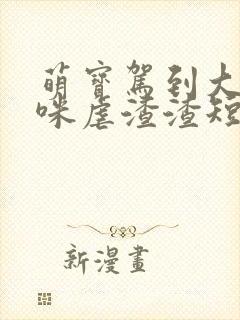 萌寶駕到大
咪虐渣渣短
新漫畫